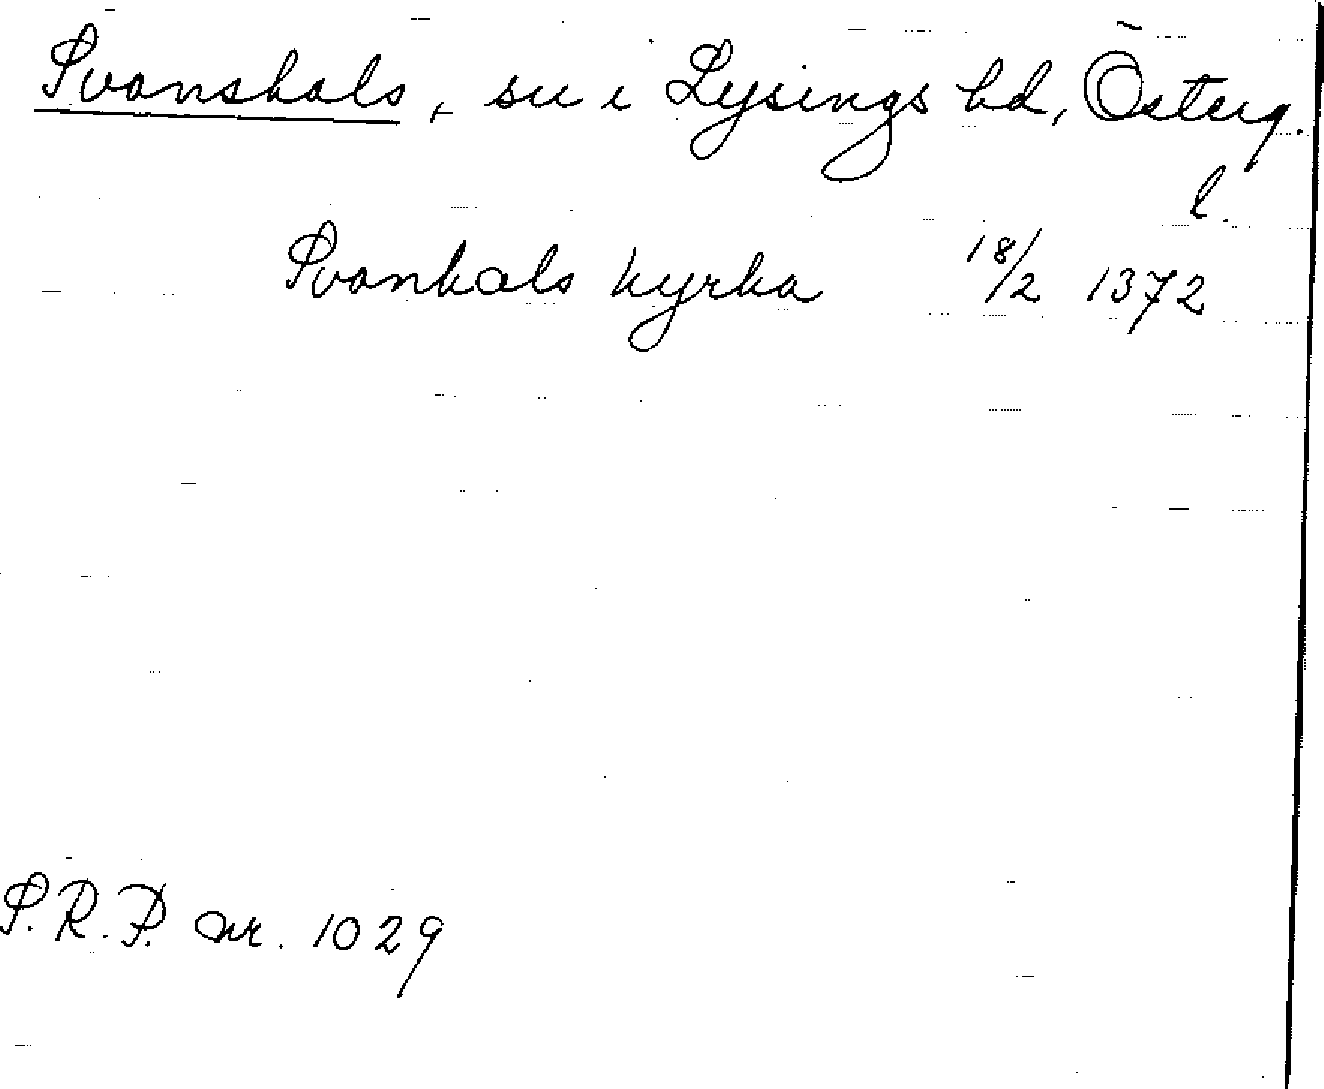 Svanshals, sn i Lysings hd, Österg.
l.
Svanhals kyrka 18/2 1372
S.R.P. nr. 1029